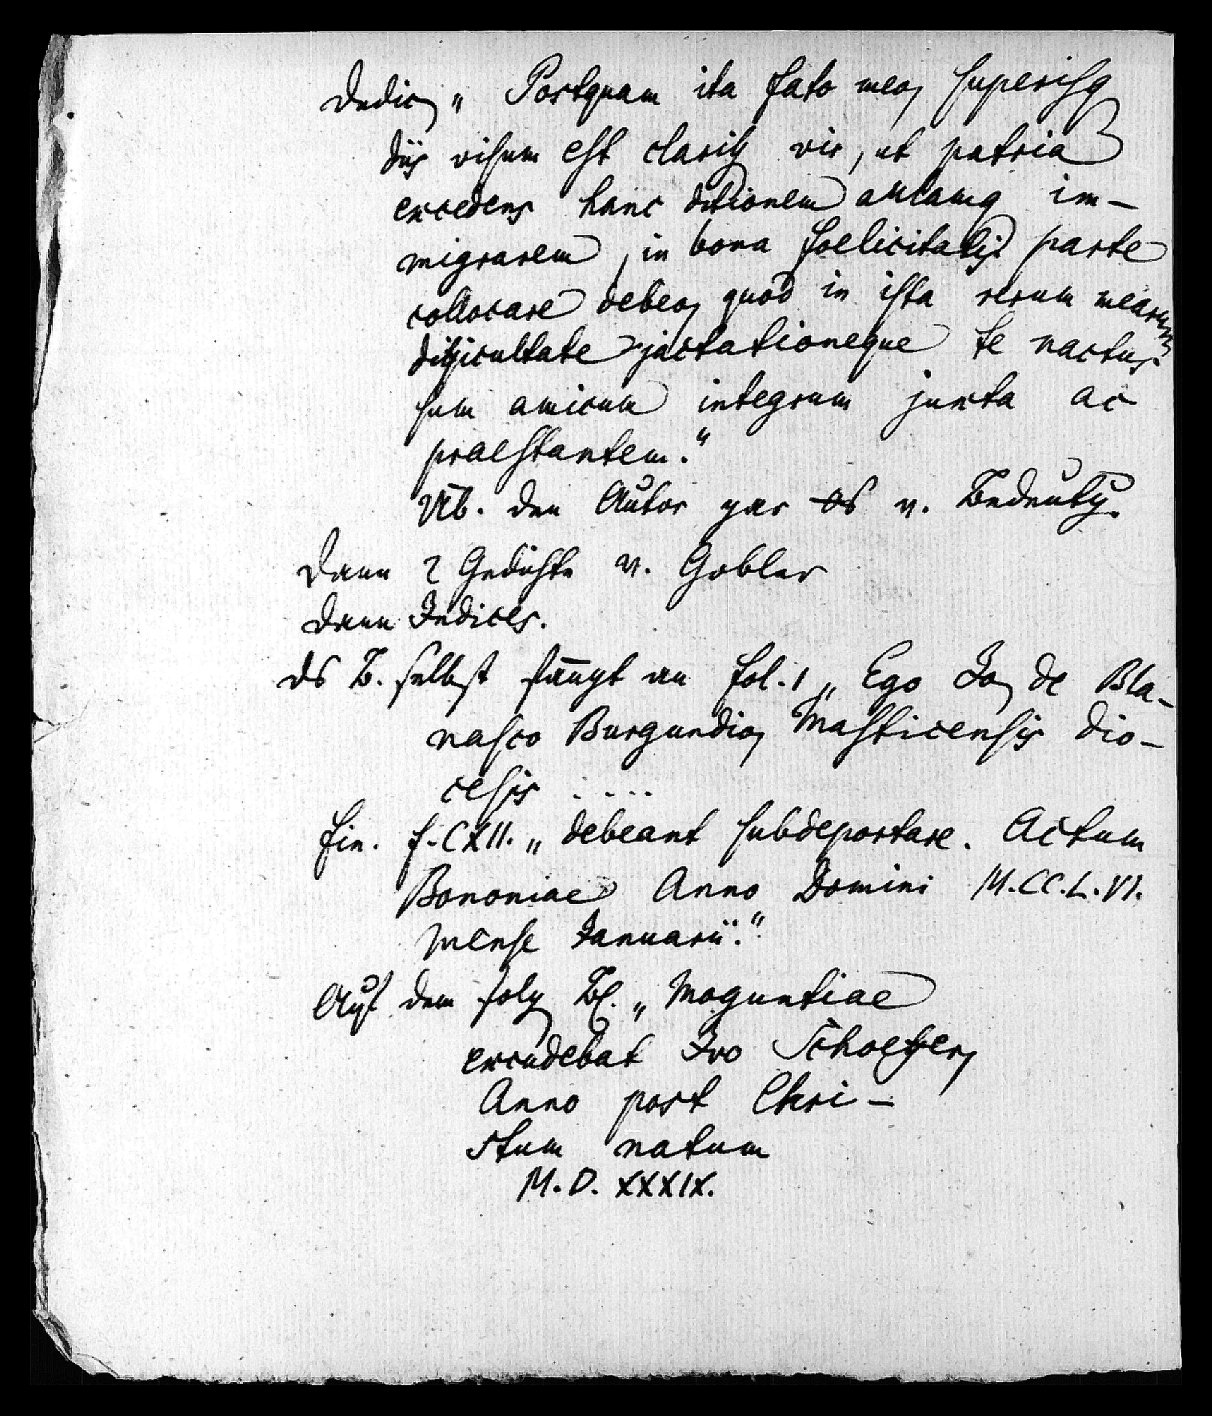 Dedic., „ Postquam ita fato meo, superisq
diis visum est clariss. vir, ut patria
excedens hanc ditionem aulamq im-
migrarem, in bona foelicitatis parte
collocare debeo, quod in ista rerum mearum
difficultate jactationeque te nactus
sum amicum integrum juxta ac
praestantem.“
Üb. den Autor gar v. Bedeutg.
Dann 2 Gedichte v. Gobler
Dann Indices.
Ds B. selbst fängt an fol. 1 „ Ego Jo, de Bla-
nasco Burgundio, Masticensis dio-
cesis . . . .
fin. f. CXII. „ debeant subdeportare. Actum
Bononiae Anno Domini M.CC.L.VI.
mense Januarii.“
Auf dem folg Bl. „ Moguntiae
excudebat Ivo Schoeffer,
Anno post Chri-
stum natum
M.D.XXXIX.